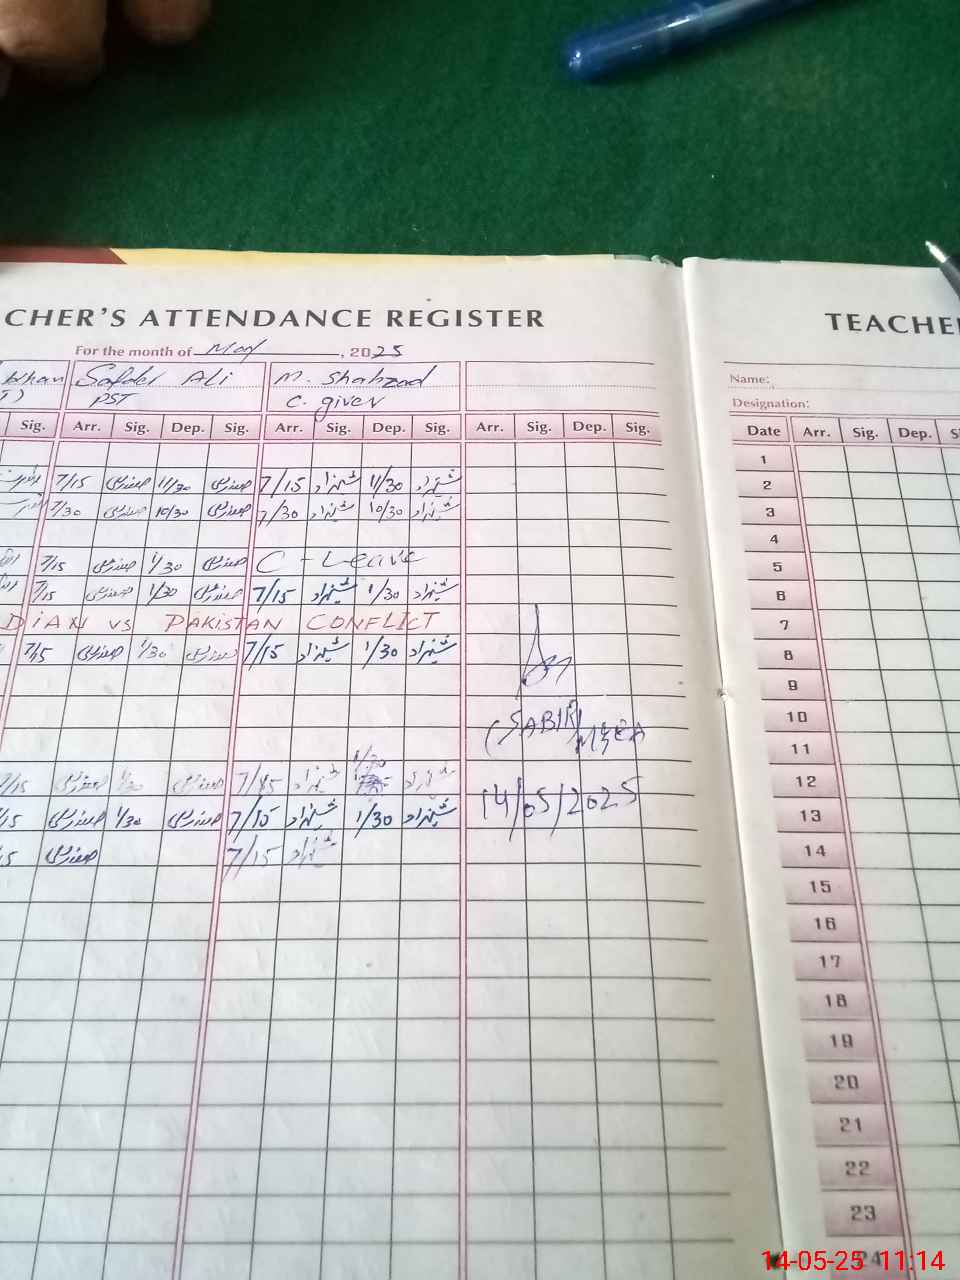 CHER'S ATTENDANCE REGISTER
For the month of May, 2025
Khan Safder Ali M. Shahzad
PST C. giver
Sig. Arr. Sig. Dep. Sig. Arr. Sig. Dep. Sig. Arr. Sig. Dep. Sig.
7/15 صفدر علی 11/30 صفدر علی 7/15 شہزاد 11/30 شہزاد
7/30 صفدر علی 10/30 صفدر علی 7/30 شہزاد 10/30 شہزاد
7/15 صفدر علی 1/30 صفدر علی C - Leave
7/15 صفدر علی 1/30 صفدر علی 7/15 شہزاد 1/30 شہزاد
DIAN VS PAKISTAN CONFLICT
7/45 صفدر علی 1/30 صفدر علی 7/15 شہزاد 1/30 شہزاد
(SABIR)
1/30
7/15 صفدر علی 1/30 صفدر علی 7/45 شہزاد شہزاد
14/05/2025
15 صفدر علی 1/30 صفدر علی 7/15 شہزاد 1/30 شہزاد
15 صفدر علی 7/15 شہزاد
TEACHE
Name:
Designation:
Date Arr. Sig. Dep. S
1
2
3
4
5
6
7
8
9
10
11
12
13
14
15
16
17
18
19
20
21
22
23
24
14-05-25 11:14